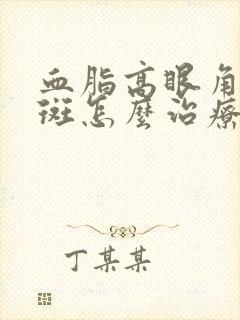 血脂高眼角
斑怎麼治療
丁某某